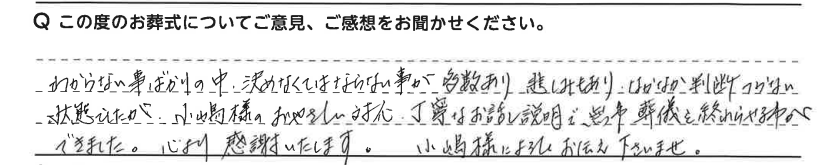 Q この度のお葬式についてご意見、ご感想をお聞かせください。
わからない事ばかりの中、決めなくてはならない事が多数あり 悲しみもあり、なかなか判断つかない
状態でしたが、小嶋様のおやさしい対応、丁寧なお話し説明で無事葬儀を終わらせる事が
できました。心より感謝いたします。 小嶋様によろしくお伝え下さいませ。